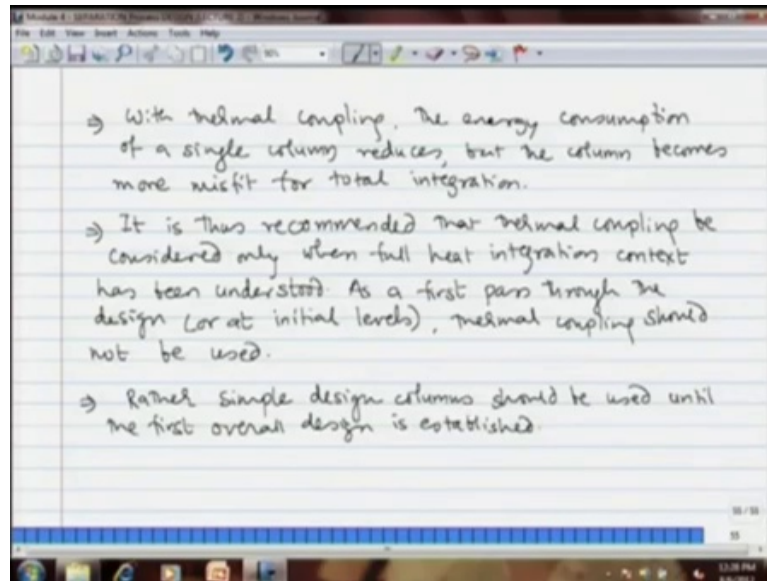 Module 4 - SEPARATION Process DESIGN (LECTURE - Windows Journal
File Edit View Insert Actions Tools Help
⇒ With thermal coupling, The energy consumption
of a single column reduces, but the column becomes
more misfit for total integration.
⇒ It is Thus recommended that thermal coupling be
considered only when full heat integration context
has been understood. As a first pass through the
design (or at initial levels), thermal coupling should
not be used.
⇒ Rather simple design columns should be used until
the first overall design is established.
55 / 55
55
12:28 PM